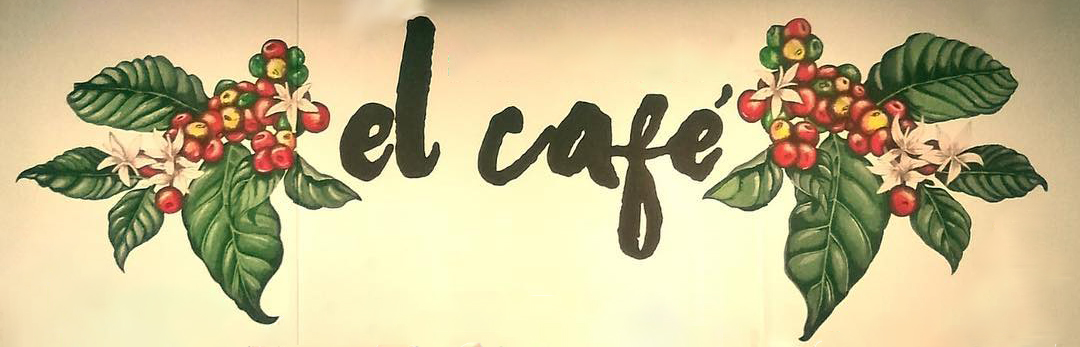 el café